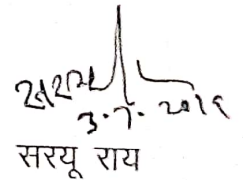 3.7.2016
सरयू राय